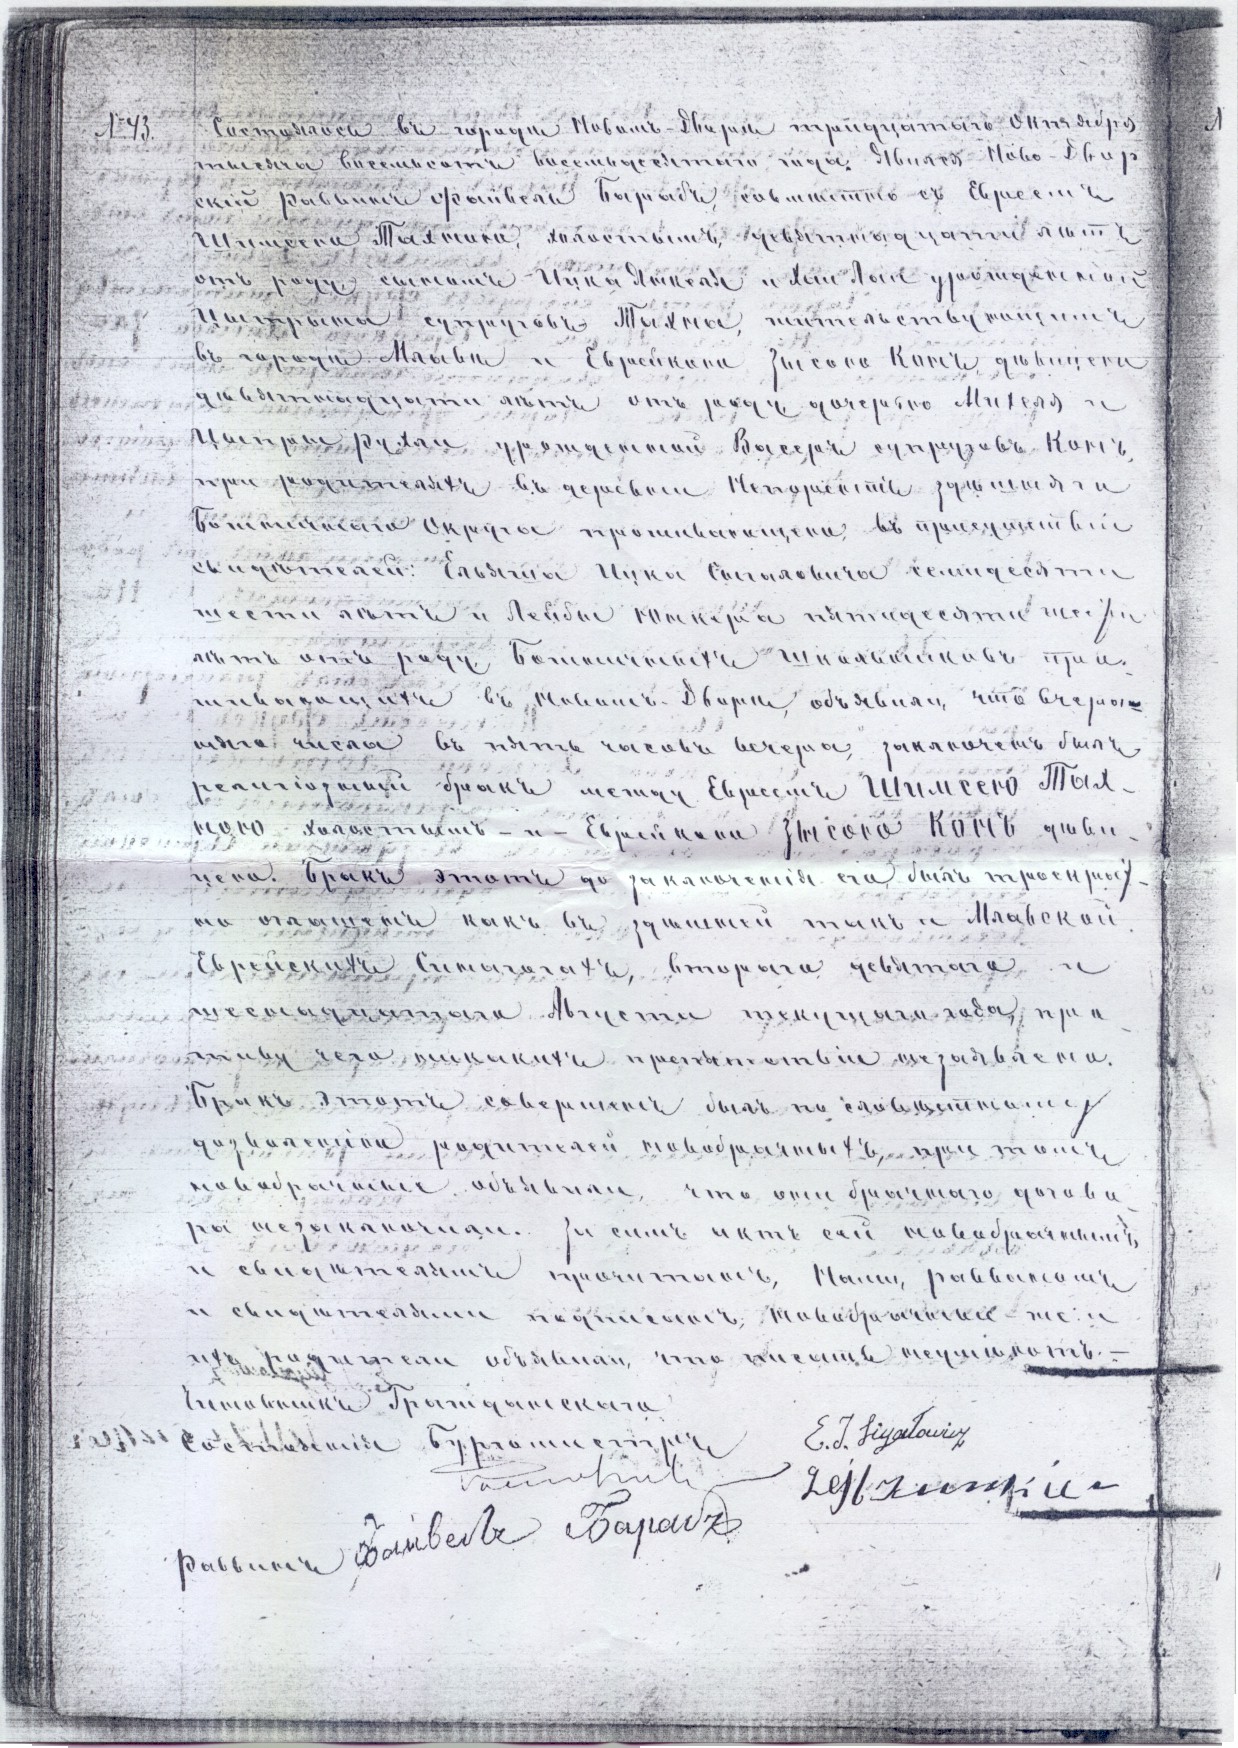 № 43.
Состоялось въ городѣ Новомъ-Дворѣ тридцатаго Октября
тысяча восемьсотъ восемьдесятаго года. Явился Ново-Двор
скій раввинъ Файвель Барабъ, совмѣстно съ Евреемъ
Шимсею Тахною, холостымъ, девятнадцати лѣтъ
отъ роду, сыномъ Ицка Янкеля и Хаи Лаи урожденной
супруговъ Тахна, жительствующимъ
въ городѣ Млавѣ и Еврейкою Зысею Конъ дѣвицею
девятнадцати лѣтъ отъ роду дочерью Михеля и
Ципры Рухли урожденной Васеръ супруговъ Конъ,
при родителяхъ въ деревни Непорентъ здѣшняго
Божничнаго Округа проживающею, въ присутствіи
свидѣтелей: Ельяша Ицка Сигаловича семидесяти
шести лѣтъ и Лейбы Юнкера пятидесяти шести
лѣтъ отъ роду Божничныхъ Школьниковъ про
живающихъ въ Новомъ-Дворѣ, объявили, что вчераш
няго числа въ пять часовъ вечера, заключенъ былъ
религіозный бракъ между Евреемъ Шимсею Тах-
ною холостымъ - и - Еврейкою Зысею Конъ дѣви-
цею. Бракъ этотъ до заключенія его былъ троекрат-
но оглашенъ какъ въ здѣшней такъ и Млавской
Еврейскихъ Синагогахъ, втораго девятаго и
шеснадцатаго Августа текущаго года, про
тиву чего никакихъ препятствій незаявлено.
Бракъ этотъ совершенъ былъ по словестному
дозволенію родителей новобрачныхъ, при томъ
новобрачные объявили, что они брачнаго догово
ра незаключили. За симъ актъ сей новобрачнымъ
и свидѣтелямъ прочитанъ, Нами, раввиномъ
и свидѣтелями подписанъ, новобрачные - же и
ихъ родители объявили, что писать неумѣютъ. —
Чиновникъ Гражданскаго
Состоянія Бургомистръ
E. J. Sigałowicz
Lejb Junkier
Раввинъ Файвель Барабъ